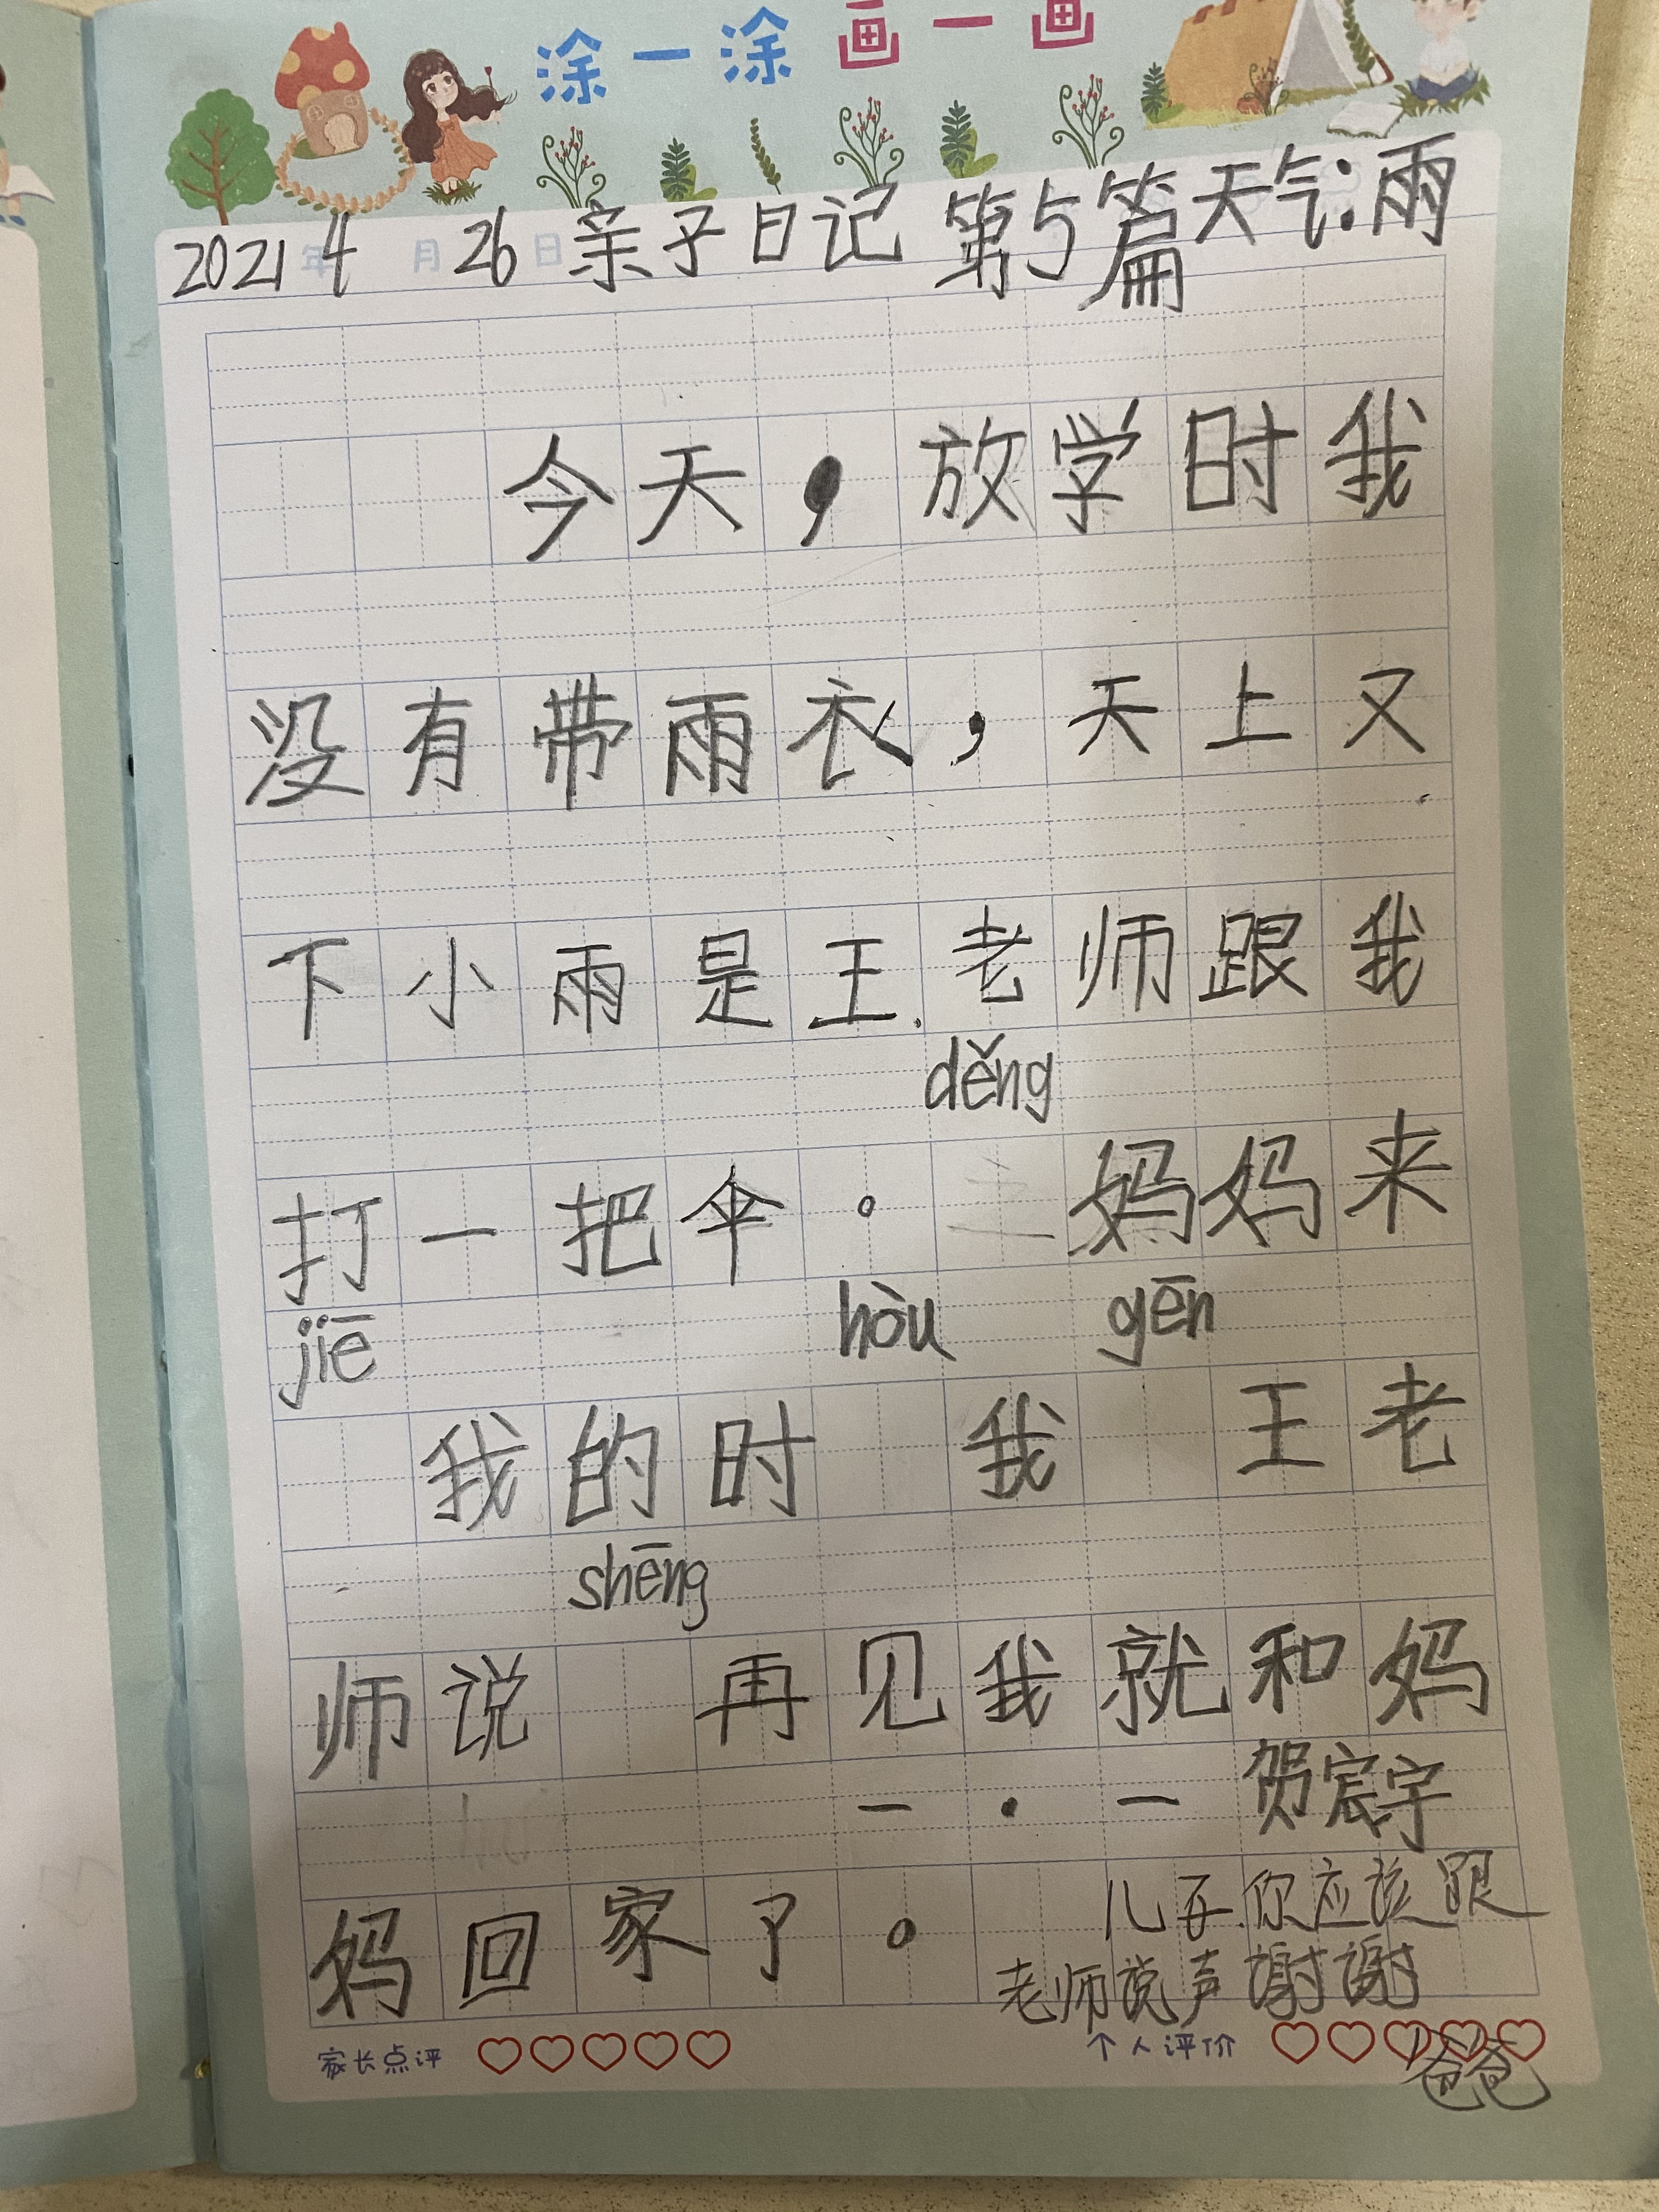 涂一涂 画一画
2021年4月26日亲子日记 第5篇天气:雨
今天，放学时我
没有带雨衣，天上又
下小雨是王老师跟我
děng
打一把伞。妈妈来
jiē hòu gēn
我的时 我 王老
shēng
师说 再见我就和妈
一·一贺宸宇
妈回家了。
儿子.你应该跟
老师说声谢谢
家长点评 个人评价
爸爸